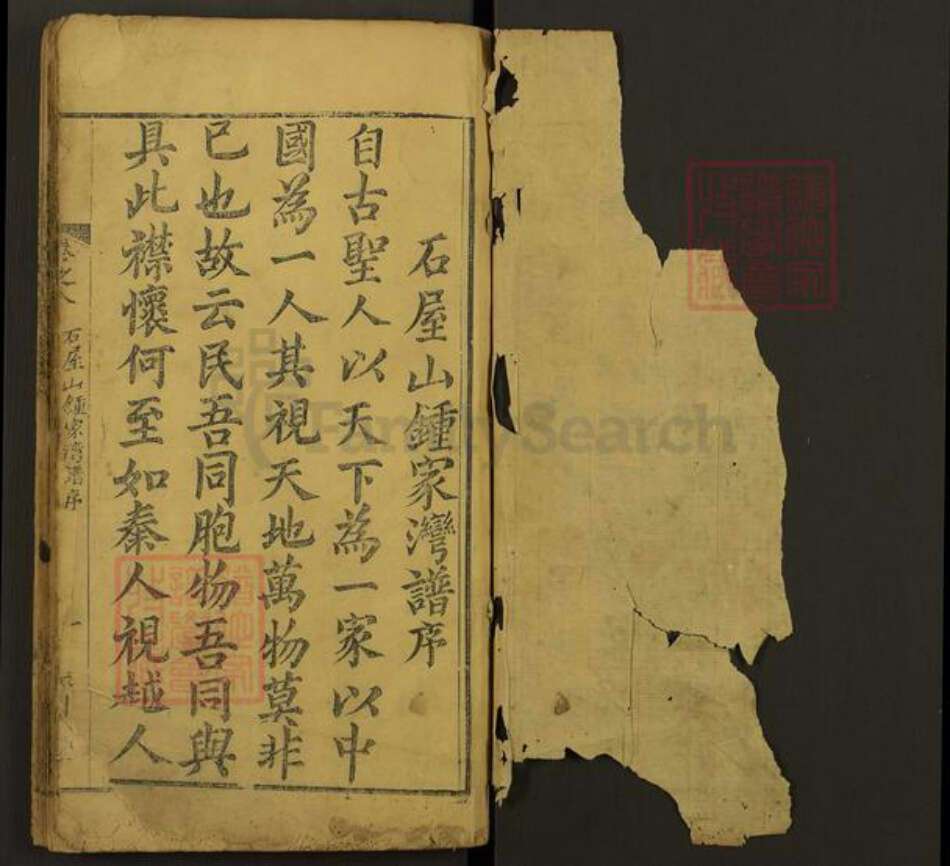 石屋山鍾家灣譜序
自古聖人以天下為一家以中
國為一人其視天地萬物莫非
已也故云民吾同胞物吾同與
具此襟懷何至如秦人視越人
卷之八 石屋山鍾家灣譜序 一
FamilySearch